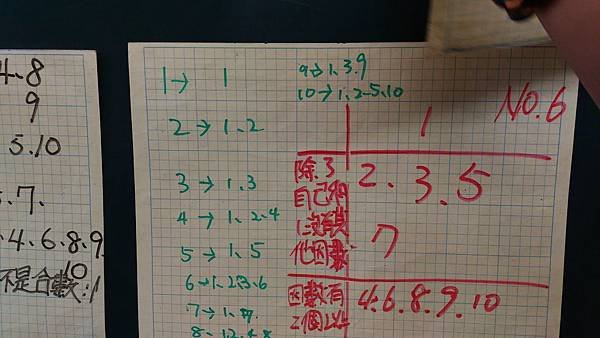 4、8
9
5.10
7、
4、6、8、9
10
不是合數:1
1→ 1
2→1、2
3→1、3
4→1、2、4
5→1、5
6→1、2、3、6
7→1、7、
8→1、2、4、8
9→1、3、9
10→1、2、5、10
NO.6
1
除了
自己和
1沒有其
他因數
2、3、5
7
因數有
2個以上
4、6、8、9、10